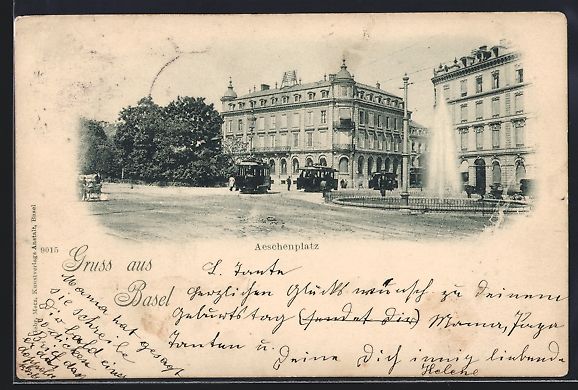 Aeschenplatz
9015
Gruss aus
Basel
Metz, Kunstverlags Anstalt, Basel
L. Tante
Herzlichen Glückswunsch zu Deinem
Geburtstag sendet Dir Mama, Papa
Tanten u. Deine Dich innig liebende
Helene
Mama hat gesagt
sie schreibe
Dir bald einen